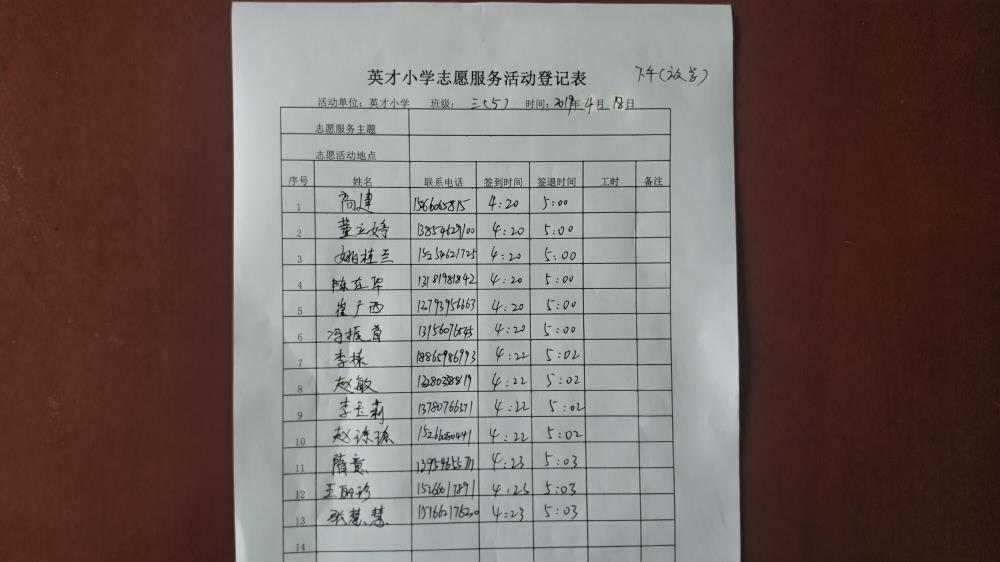 英才小学志愿服务活动登记表 下午(放学)
活动单位：英才小学 班级：三(5) 时间：2019年4月18日
志愿服务主题
志愿活动地点
序号 姓名 联系电话 签到时间 签退时间 工时 备注
1 高建 4:20 5:00
2 董立婷 13854629100 4:20 5:00
3 姚桂兰 15254621725 4:20 5:00
4 13181981842 4:20 5:00
5 崔广西 12793956663 4:20 5:00
6 冯振首 4:20 5:00
7 李栋 18865986993 4:22 5:02
8 赵敏 4:22 5:02
9 李玉莉 13780766371 4:22 5:02
10 赵琼琼 4:22 5:02
11 隋意 4:23 5:03
12 王丽珍 4:23 5:03
13 张慧慧 15166217620 4:23 5:03
14